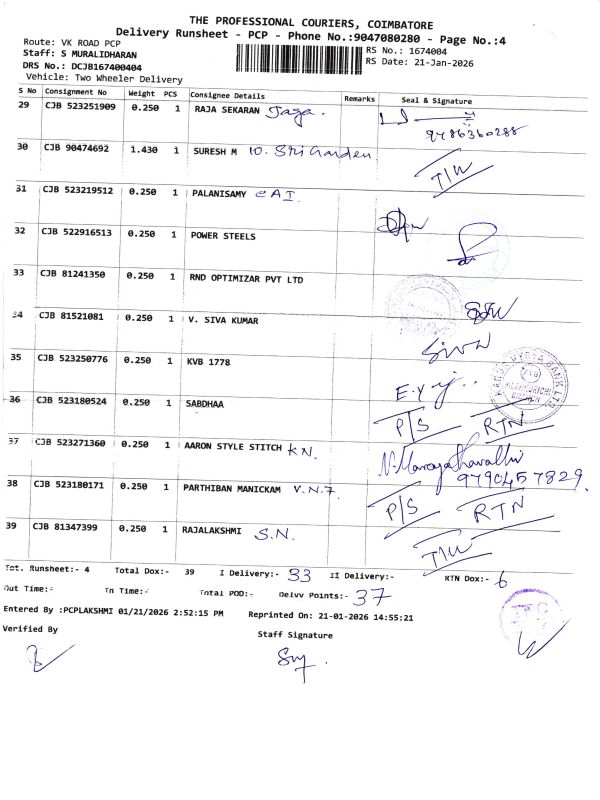 THE PROFESSIONAL COURIERS, COIMBATORE
Delivery Runsheet - PCP - Phone No.:9047080280 - Page No.:4
Route: VK ROAD PCP
RS No.: 1674004
Staff: S MURALIDHARAN
RS Date: 21-Jan-2026
DRS No.: DCJB167400404
Vehicle: Two Wheeler Delivery
S No Consignment No Weight PCS Consignee Details Remarks Seal & Signature
29 CJB 523251909 0.250 1 RAJA SEKARAN Jaga.
9786360288
30 CJB 90474692 1.430 1 SURESH M 10. Sri Garden
T/W
31 CJB 523219512 0.250 1 PALANISAMY
32 CJB 522916513 0.250 1 POWER STEELS
33 CJB 81241350 0.250 1 RND OPTIMIZAR PVT LTD
34 CJB 81521081 0.250 1 V. SIVA KUMAR
Siva
35 CJB 523250776 0.250 1 KVB 1778
36 CJB 523180524 0.250 1 SABDHAA
P/S RTN
37 CJB 523271360 0.250 1 AARON STYLE STITCH K.N.
9790457829
38 CJB 523180171 0.250 1 PARTHIBAN MANICKAM V.N.7
P/S RTN
39 CJB 81347399 0.250 1 RAJALAKSHMI S.N.
T/W
Tot. Runsheet:- 4 Total Dox:- 39 I Delivery:- 33 II Delivery:- RTN Dox:- 6
Out Time:- In Time:- Total POD:- Delvv Points:- 37
Entered By :PCPLAKSHMI 01/21/2026 2:52:15 PM Reprinted On: 21-01-2026 14:55:21
Verified By
Staff Signature